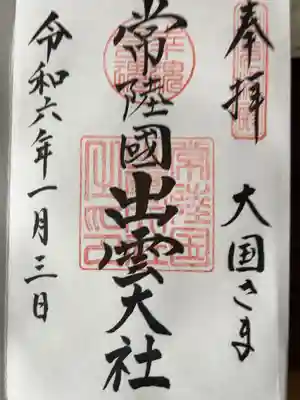 奉拝
大国さま
常陸國出雲大社
令和六年一月三日